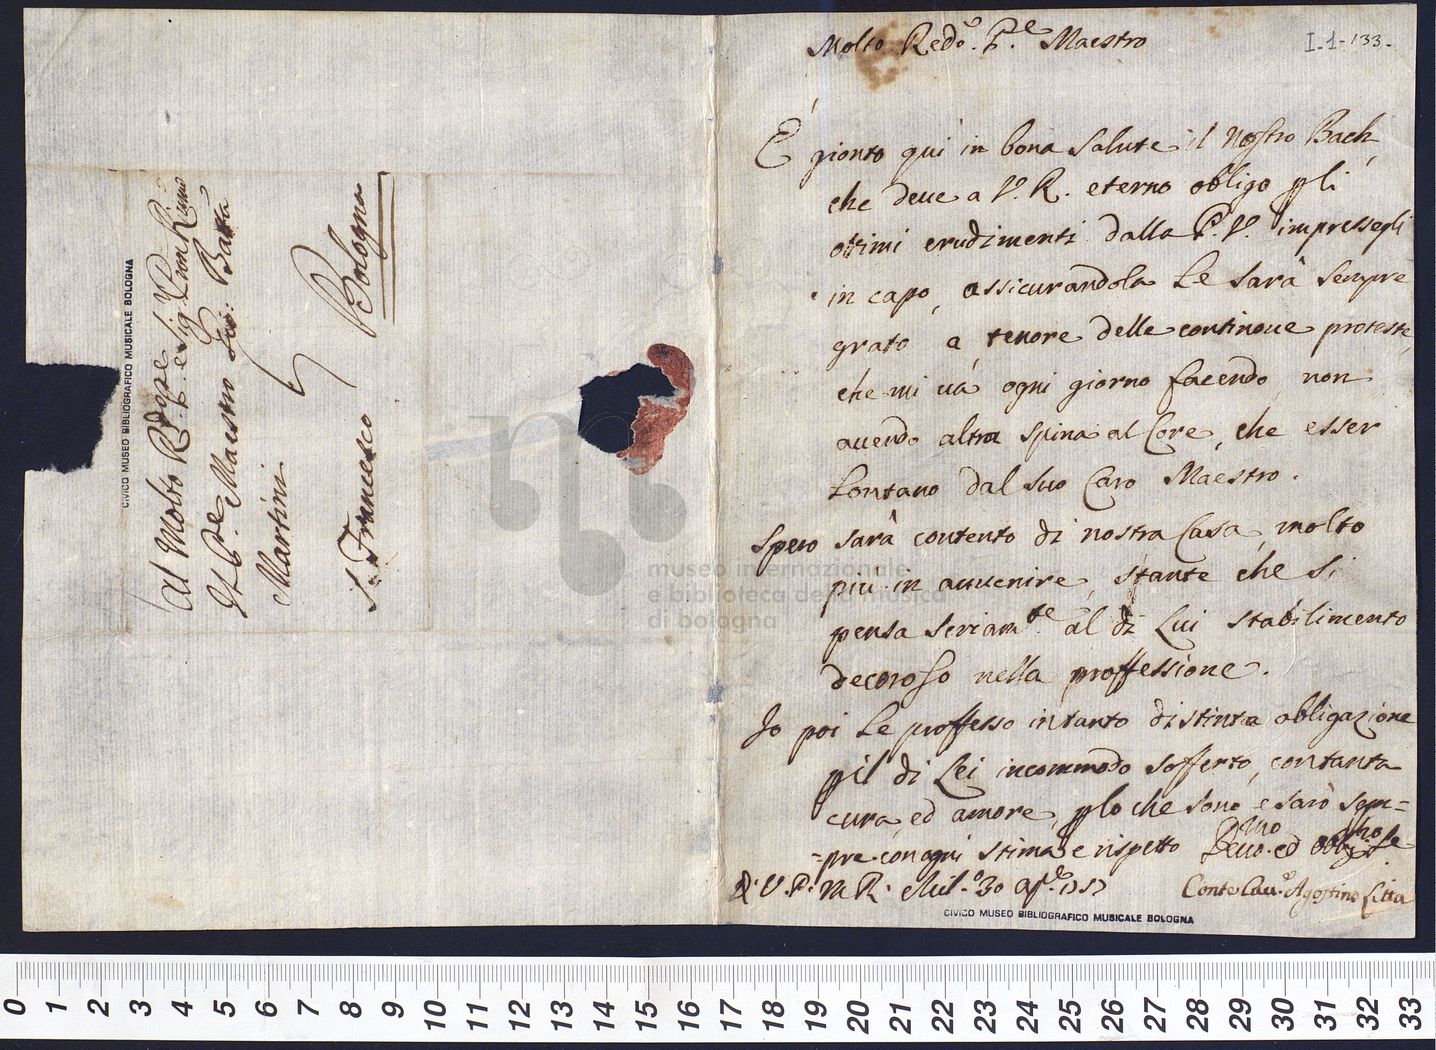 Molto Redo. Pe. Maestro
I-1-133.
É gionto qui in bona salute il nostro Bach,
che deve a V. R. eterno obligo p li
ottimi erudimenti dalla P. V. impressegli
in capo, assicurandola Le sarà sempre
grato, a tenore delle continoue proteste,
che mi và ogni giorno facendo, non
avendo altra spina al Core, che esser
Lontano dal suo Caro Maestro.
Spero sarà contento di nostra Casa, molto
più in avvenire, stante che si
pensa seriamte. al di Lui stabilimento
decoroso nella proffessione.
Io poi Le proffesso intanto distinta obbligazione
p il di Lei incommodo sofferto, con tanta
cura, ed amore, p lo che sono, e sarò sem=
=pre con ogni stima e rispetto
D. V. P. M. R. Mil.o 30 Ap.le 1757
Devmo. ed
Conte Cav.e Agostino Litta
CIVICO MUSEO BIBLIOGRAFICO MUSICALE BOLOGNA
Al Molto Rdo
Il Pre Maestro Gio: Batta
Martini
S. Francesco
Bologna
CIVICO MUSEO BIBLIOGRAFICO MUSICALE BOLOGNA
museo internazionale
e biblioteca della musica
di bologna
0 1 2 3 4 5 6 7 8 9 10 11 12 13 14 15 16 17 18 19 20 21 22 23 24 25 26 27 28 29 30 31 32 33